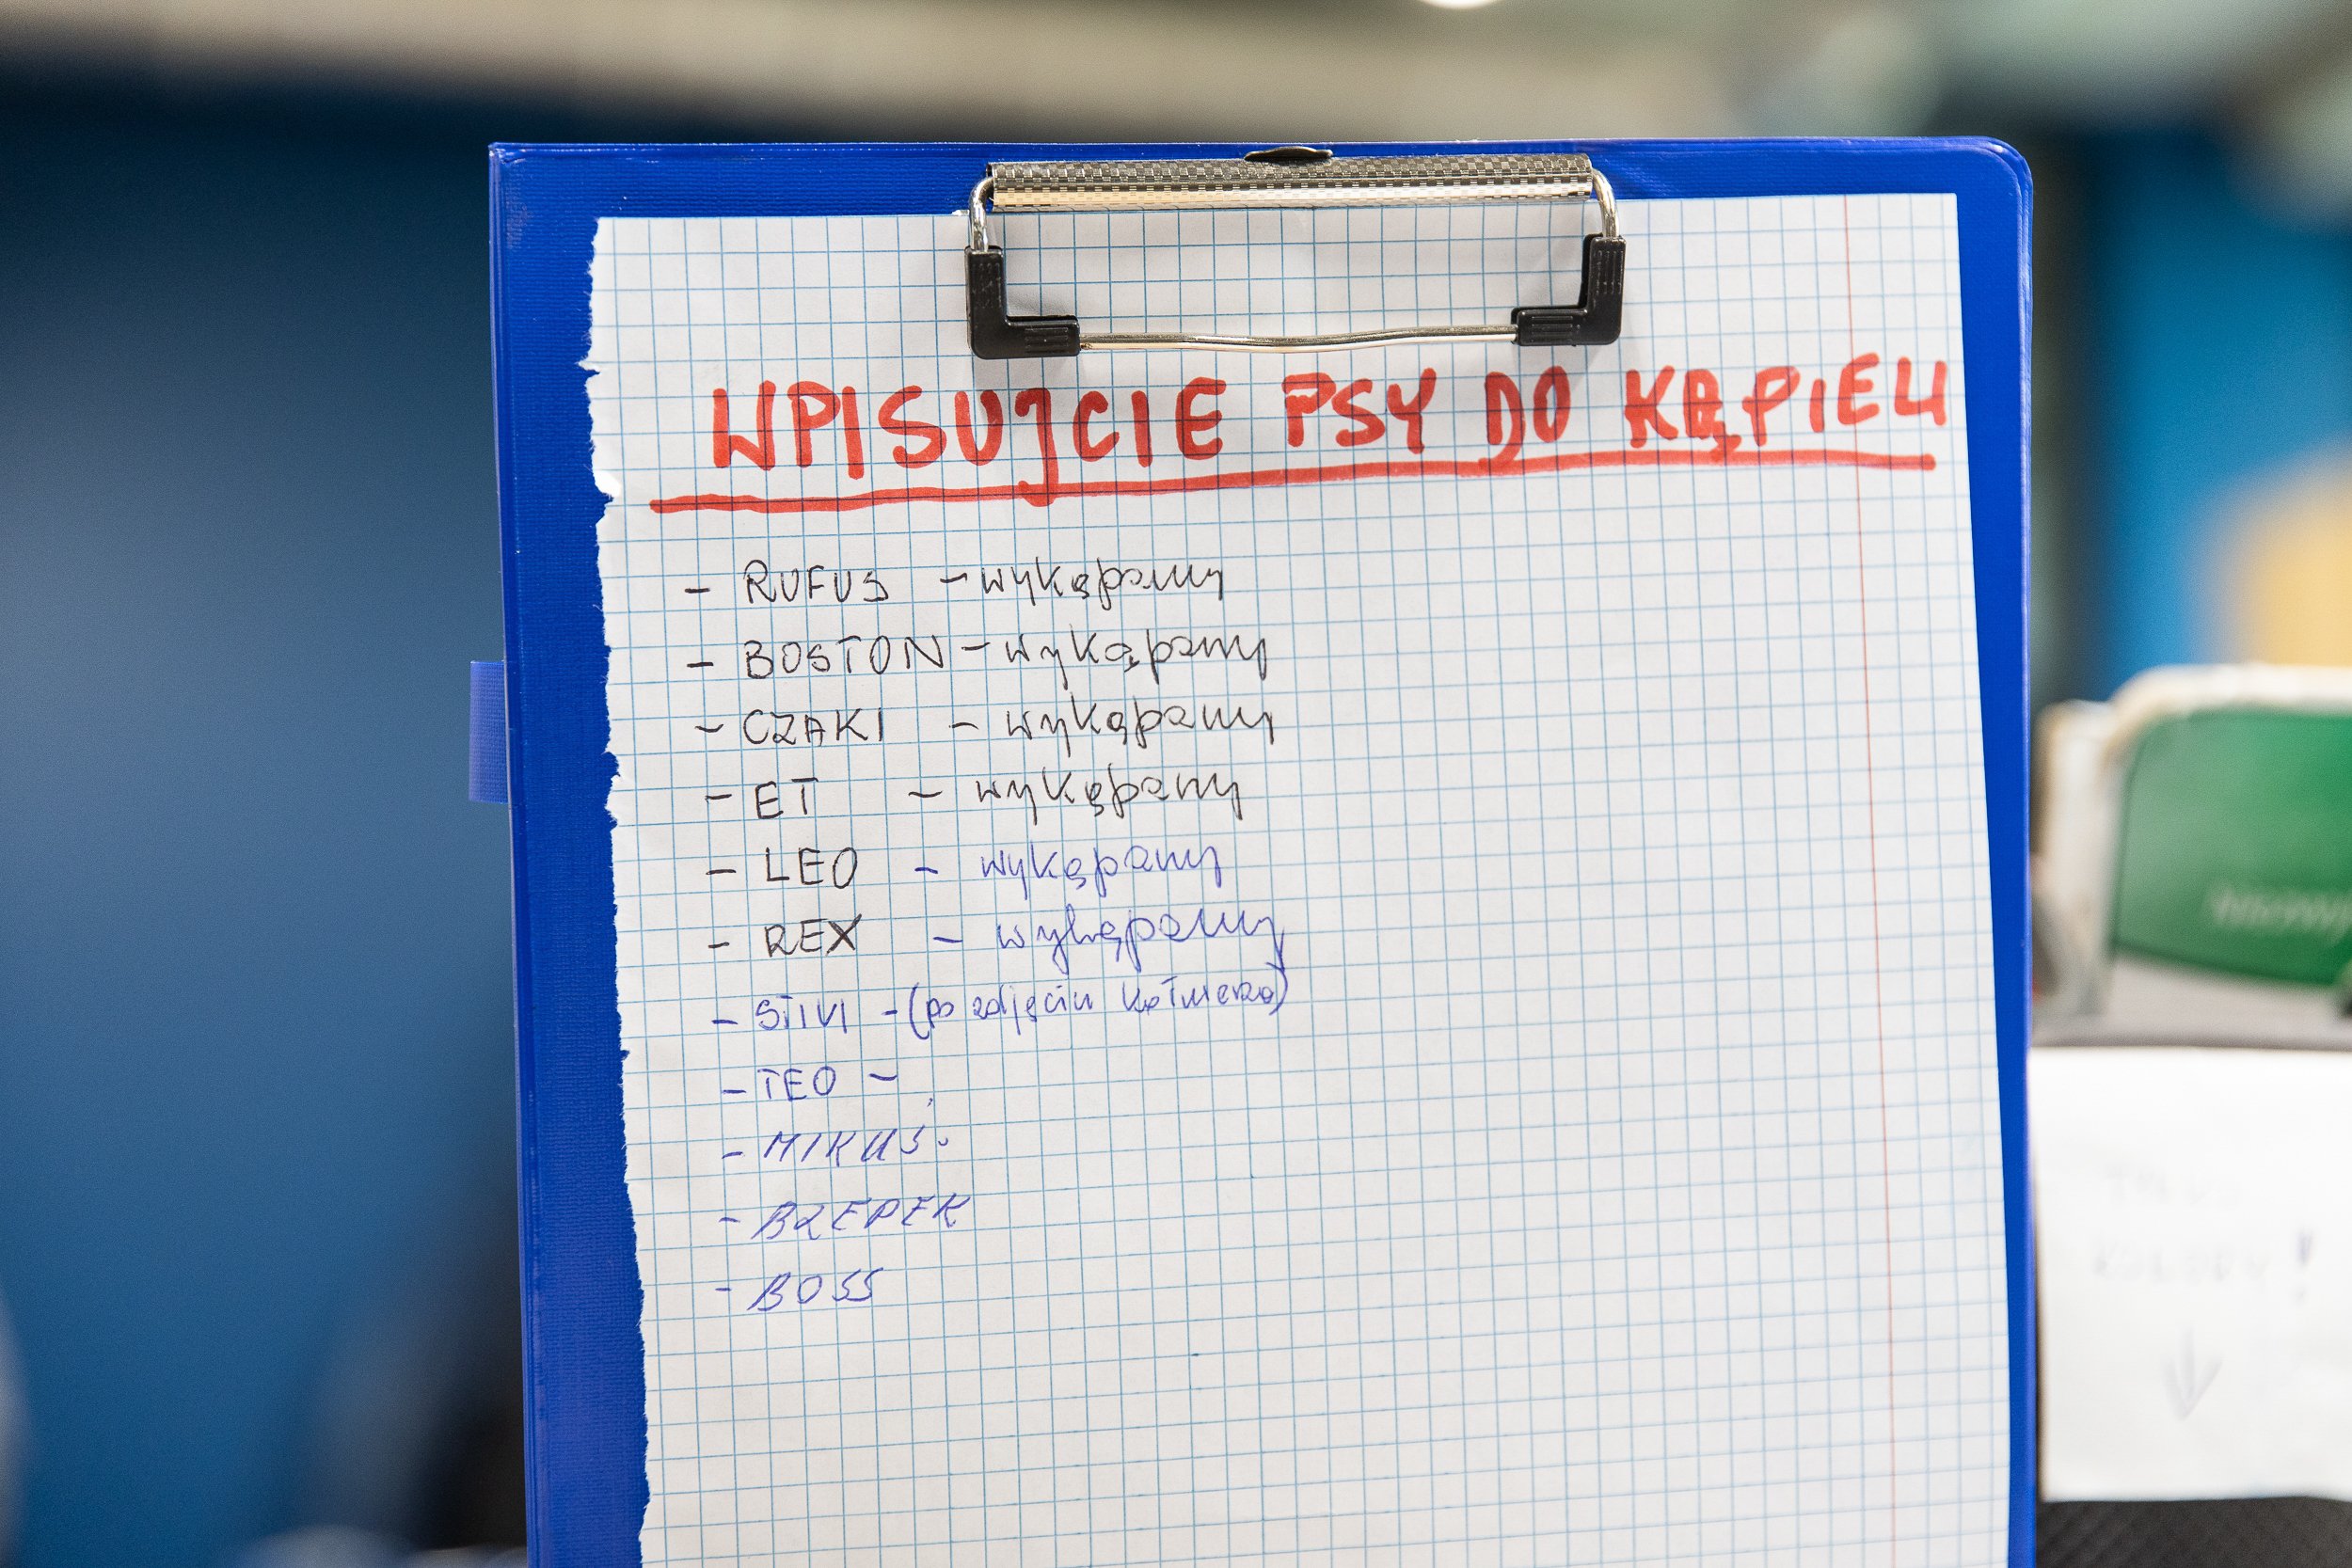 WPISUJCIE PSY DO KĄPIELI
- RUFUS - wykąpany
- BOSTON - wykąpany
- CZAKI - wykąpany
- ET - wykąpany
- LEO - wykąpany
- REX - wykąpany
- STIVI - (po zdjęciu kołnierza)
- TEO -
- MIKUŚ.
- BZEPEK
- BOSS